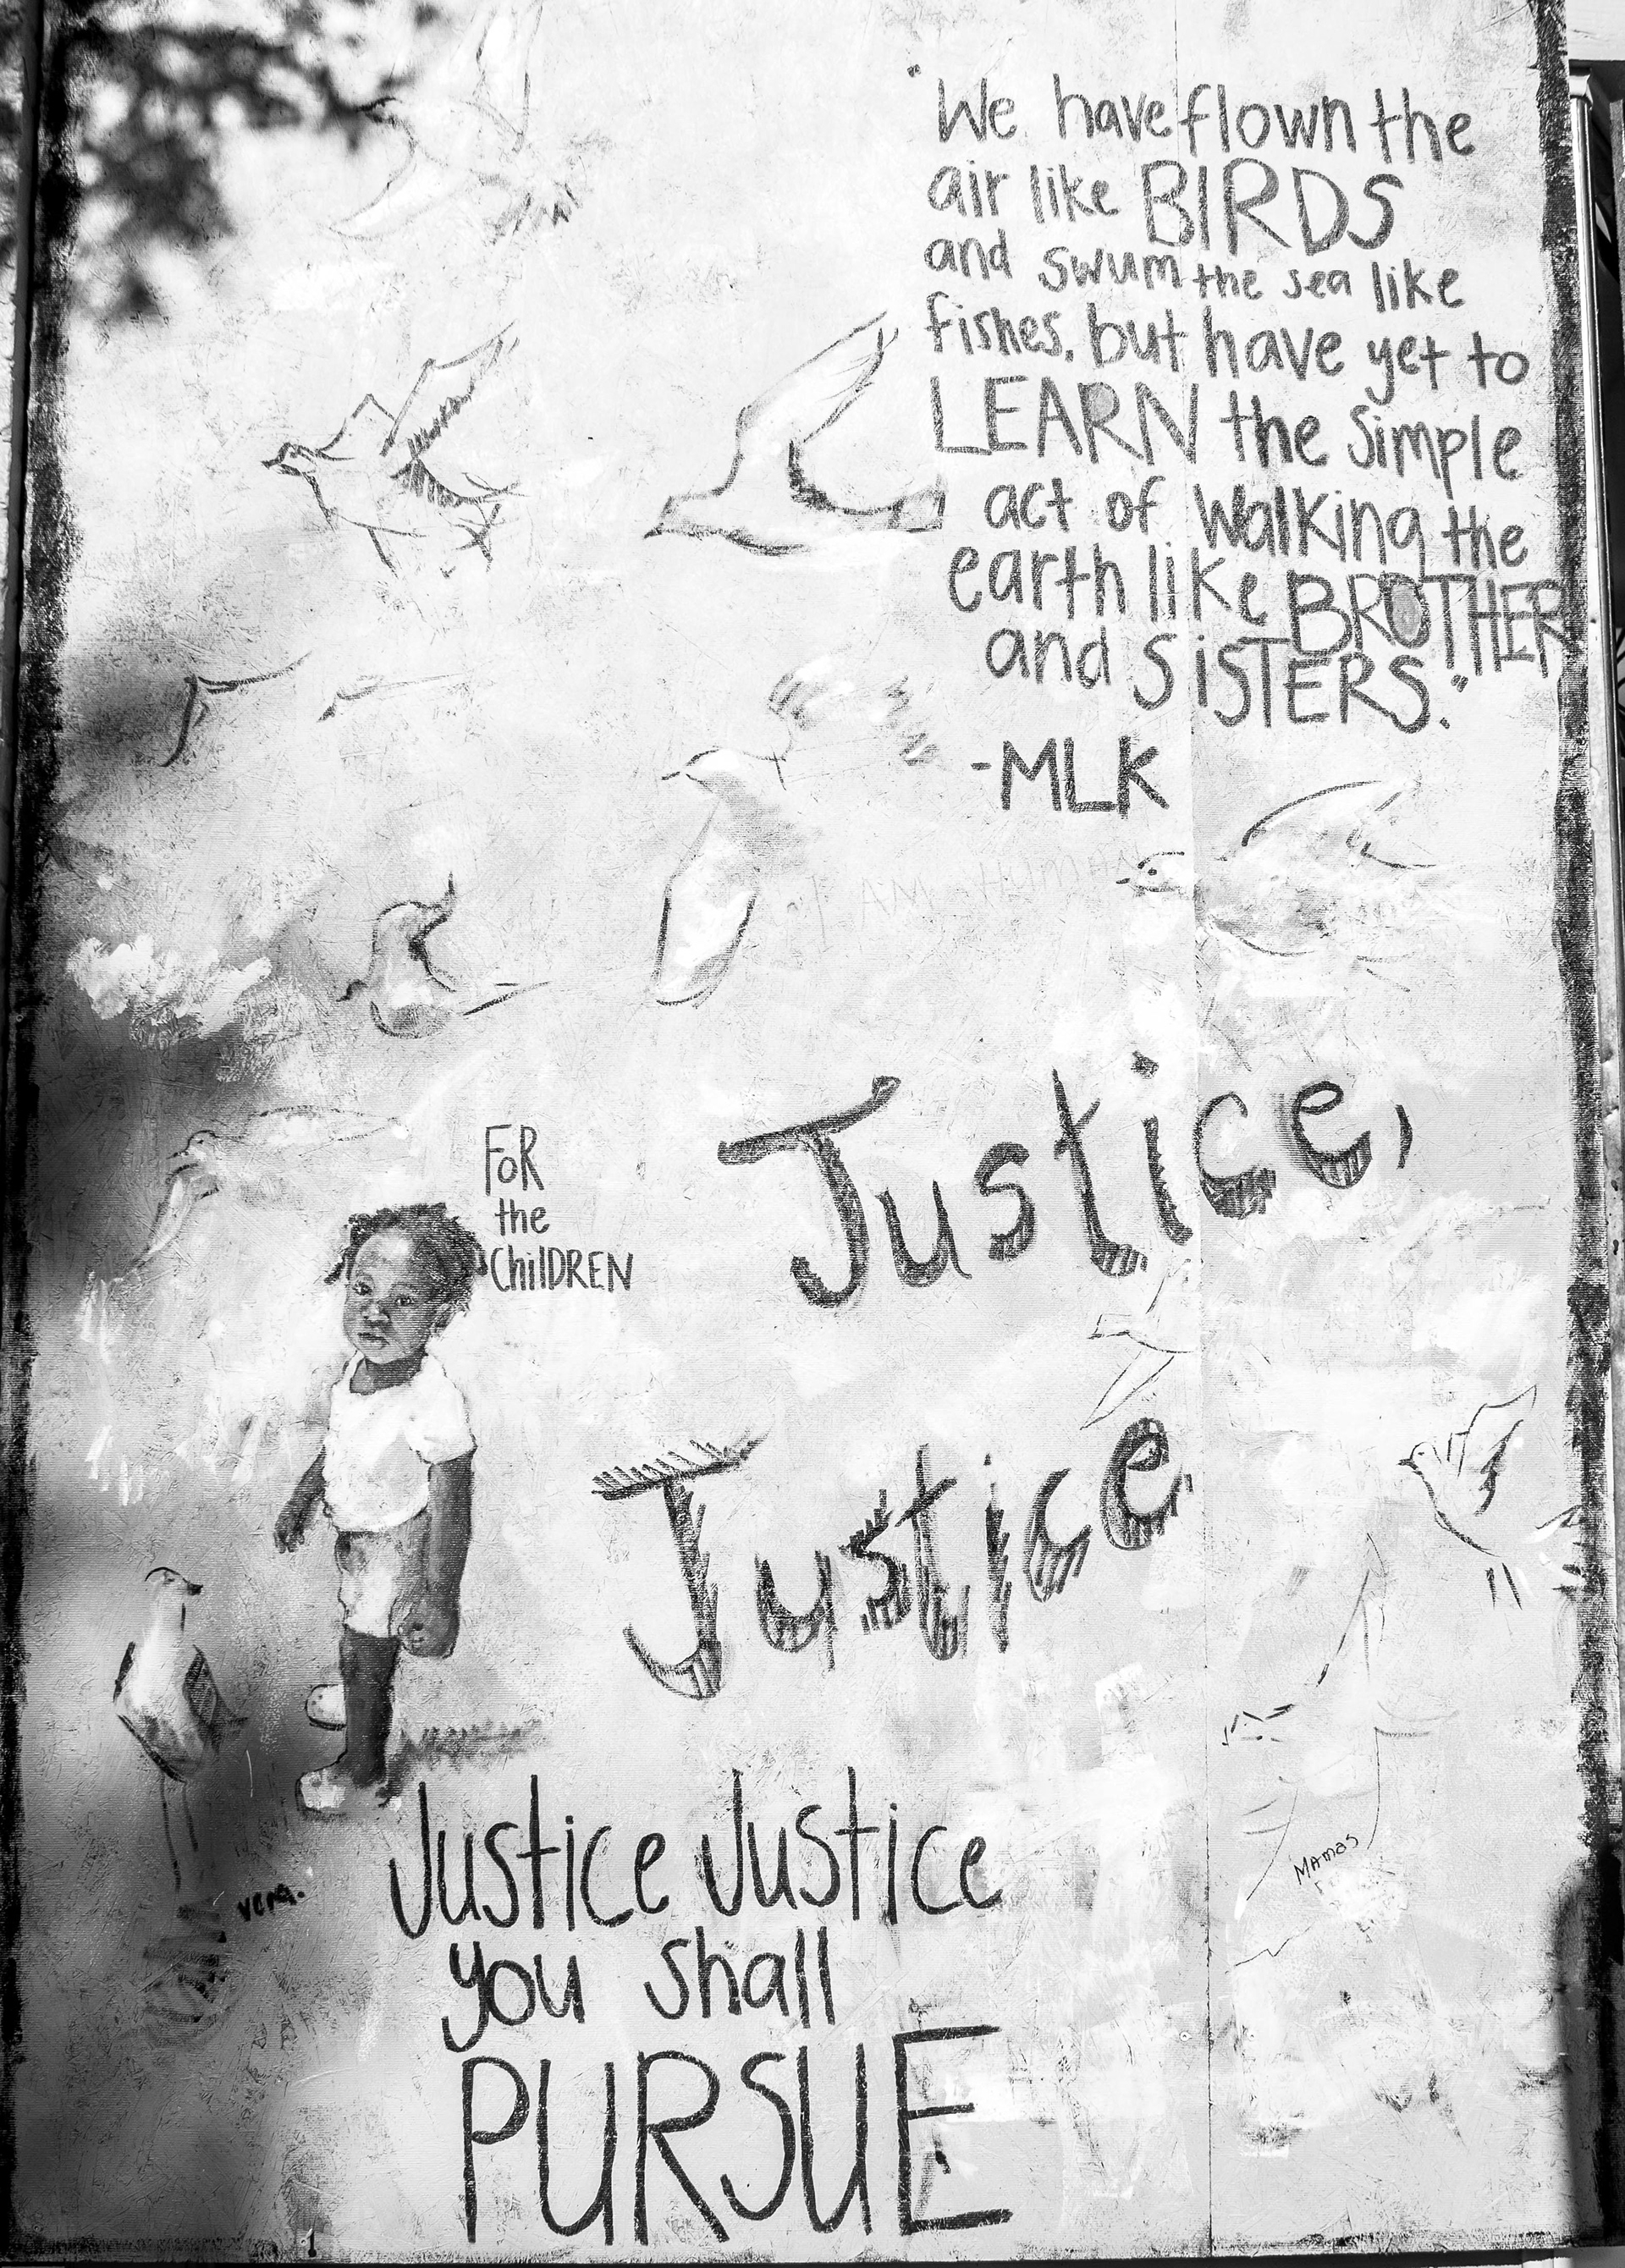 "We have flown the
air like BIRDS
and swum the sea like
fishes, but have yet to
LEARN the simple
act of walking the
earth like BROTHER
and SISTERS."
-MLK
I AM HUMAN
Justice,
FOR
the
ChilDREN
Justice,
Mamas
vera.
Justice Justice
you shall
PURSUE
1